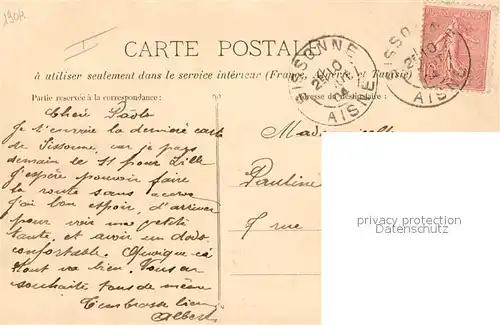 1904
CARTE POSTALE
à utiliser seulement dans le service intérieur (France, Algérie, et Tunisie)
Partie réservée à la correspondance:
Adresse du destinataire:
SISSONNE
AISNE
SISSO
AISNE
Chère
Je t'envoie la dernière carte
de Sissonne, car je pars
demain le 11 pour Lille
j'espère pouvoir faire
la route sans
j'ai bon espoir, d'arriver
pour voir ma petite
tante, et avoir un dodo
confortable. Quoique ça
tout va bien. Vous en
souhaite tous de même
T'embrasse bien
Albert
Pauline
7 rue
privacy protection
privacy protection